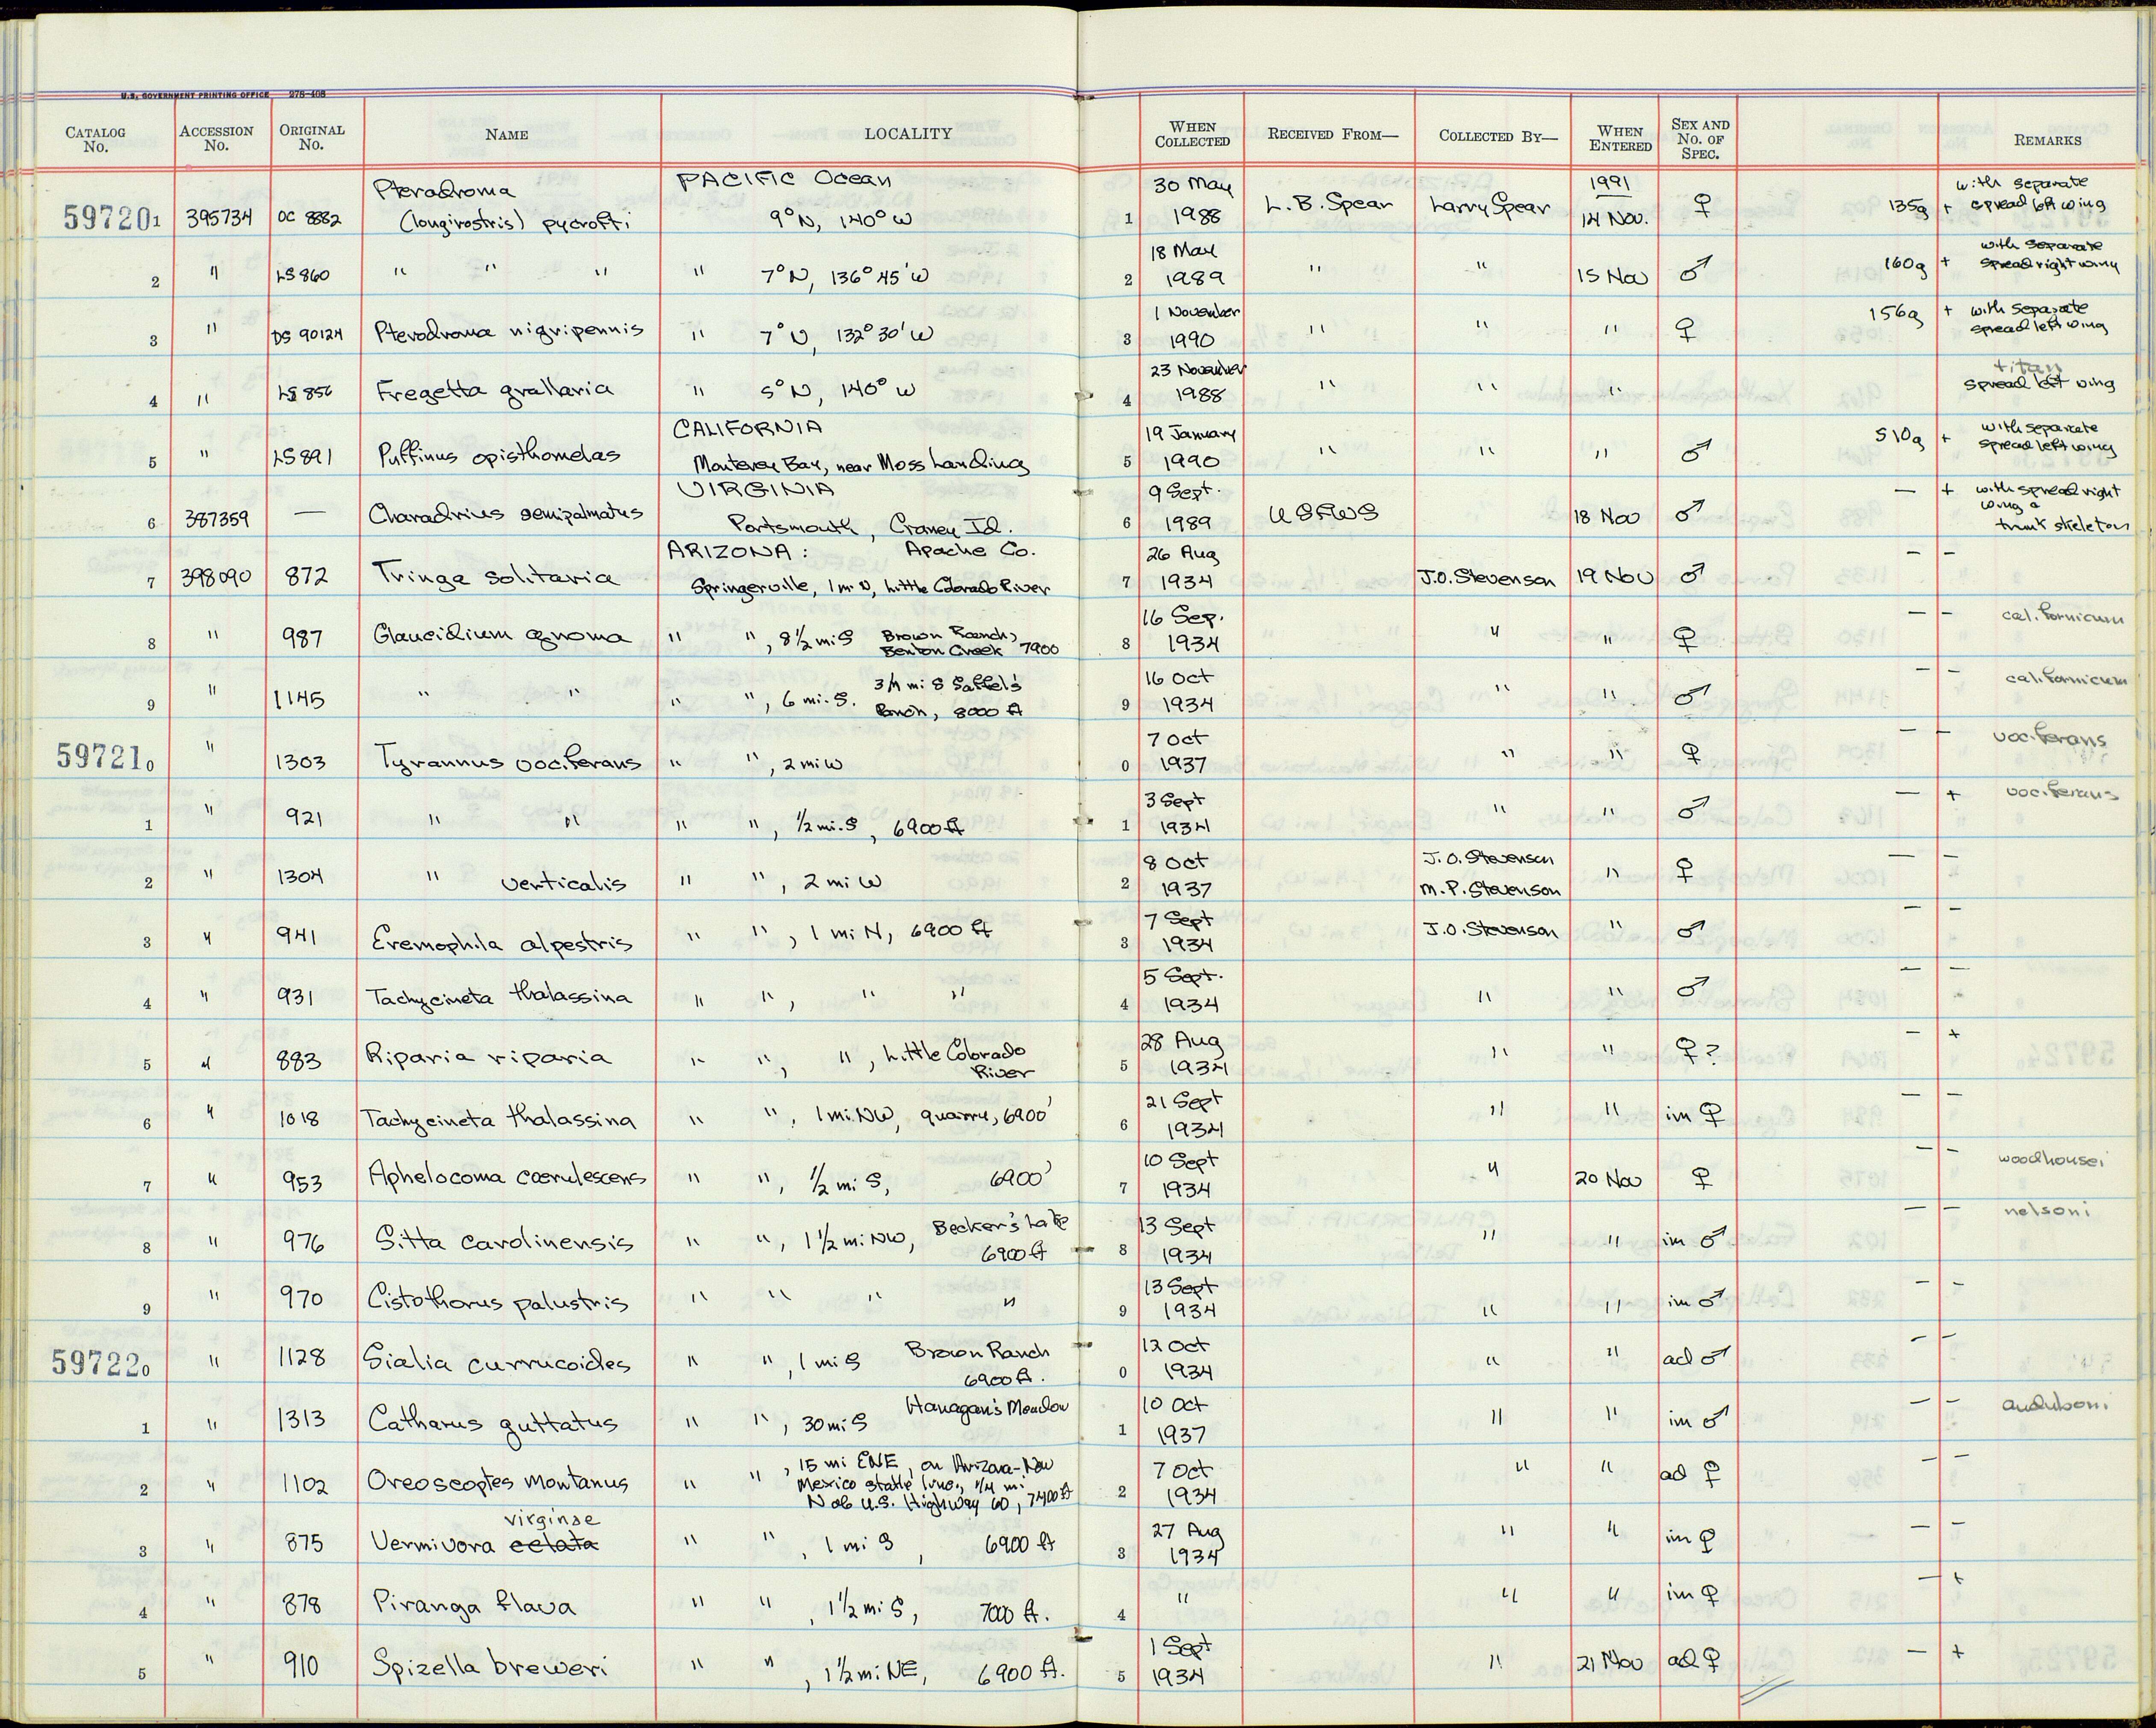 U.S. GOVERNMENT PRINTING OFFICE 278-408
CATALOG No. ACCESSION No. ORIGINAL No. NAME LOCALITY WHEN COLLECTED RECEIVED FROM— COLLECTED BY— WHEN ENTERED SEX AND No. OF SPEC. REMARKS
Pterodroma PACIFIC Ocean 30 May 1991 with separate
597201 395734 OC 8882 (longirostris) pycrofti 9° N, 140° W 1 1988 L.B. Spear Larry Spear 14 Nov. ♀ 135g + spread left wing
18 May with separate
2 " LS 860 " " " " 7° N, 136° 45' W 2 1989 " " 15 Nov ♂ 160g + spread right wing
1 November with separate
3 " DS 90124 Pterodroma nigripennis " 7° N, 132° 30' W 3 1990 " " " ♀ 156g + spread left wing
23 November titan
4 " LS 856 Fregetta grallaria " 5° N, 140° W 4 1988 " " " spread left wing
CALIFORNIA 19 January with separate
5 " LS 891 Puffinus opisthomelas Monterey Bay, near Moss Landing 5 1990 " " " ♂ 510g + spread left wing
VIRGINIA 9 Sept. with spread right
6 387359 — Charadrius semipalmatus Portsmouth, Craney Id. 6 1989 USFWS 18 Nov ♂ — + wing & trunk skeleton
ARIZONA: Apache Co. 26 Aug
7 398090 872 Tringa solitaria Springerville, 1 mi N, Little Colorado River 7 1934 J.O. Stevenson 19 Nov ♂ — —
Brown Ranch, 16 Sep.
8 " 987 Glaucidium gnoma " ", 8 1/2 mi S Benton Creek 7900 8 1934 " " ♀ — — californicum
3/4 mi S Saffel's 16 Oct
9 " 1145 " " " ", 6 mi. S. Ranch, 8000 ft 9 1934 " " ♂ — — californicum
7 Oct
597210 " 1303 Tyrannus vociferans " ", 2 mi W 0 1937 " " ♀ — — vociferans
3 Sept
1 " 921 " " " ", 1/2 mi. S, 6900 ft 1 1934 " " ♂ — + vociferans
8 Oct J.O. Stevenson
2 " 1304 " verticalis " ", 2 mi W 2 1937 M.P. Stevenson " ♀ — —
7 Sept
3 " 941 Eremophila alpestris " ", 1 mi N, 6900 ft 3 1934 J.O. Stevenson " ♂ — —
5 Sept.
4 " 931 Tachycineta thalassina " ", " " 4 1934 " " ♂ — —
28 Aug
5 " 883 Riparia riparia " ", ", Little Colorado River 5 1934 " " ♀? — +
21 Sept
6 " 1018 Tachycineta thalassina " ", 1 mi. NW, quarry, 6900' 6 1934 " " im ♀ — —
10 Sept
7 " 953 Aphelocoma coerulescens " ", 1/2 mi S, 6900' 7 1934 " 20 Nov ♀ — — woodhousei
Becker's Lake 13 Sept
8 " 976 Sitta carolinensis " ", 1 1/2 mi NW, 6900 ft 8 1934 " " im ♂ — — nelsoni
13 Sept
9 " 970 Cistothorus palustris " " " " 9 1934 " " im ♂ — —
Brown Ranch 12 Oct
597220 " 1128 Sialia currucoides " ", 1 mi S 6900 ft. 0 1934 " " ad ♂ — —
Hanagan's Meadow 10 Oct
1 " 1313 Catharus guttatus " ", 30 mi S 1 1937 " " im ♂ — — auduboni
, 15 mi ENE, on Arizona-New 7 Oct
2 " 1102 Oreoscoptes montanus " " Mexico state line, 1/4 mi 2 1934 " " ad ♀ — —
N of U.S. Highway 60, 7400 ft
virginae 27 Aug
3 " 875 Vermivora celata " ", 1 mi S, 6900 ft 3 1934 " " im ♀ — —
4 " 878 Piranga flava " ", 1 1/2 mi S, 7000 ft. 4 " " " im ♀ — +
1 Sept
5 " 910 Spizella breweri " ", 1 1/2 mi NE, 6900 ft. 5 1934 " 21 Nov ad ♀ — +